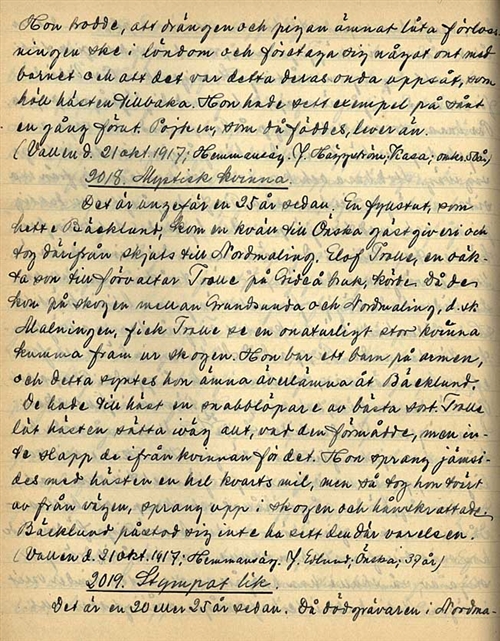 Hon trodde, att drängen och pigan ämnat låta förloss-
ningen ske i löndom och företaga sig något ont med
barnet och att det var detta deras onda uppsåt, som
höll hästen tillbaka. Hon hade sett exempel på sånt
en gång förut. Pojken, som då föddes, lever än.
(Vallen d. 21 okt 1917; Hemmansäg. J. Häggström, Kasa; omkr. 50 år)
2018. Mystisk kvinna.
Det är ungefär en 25 år sedan. En fyllstut, som
hette Bäcklund, kom en kväll till Önska gästgiveri och
tog därifrån skjuts till Nordmaling. Elof Tralle, en oäk-
ta son till förvaltar Tralle på Gideå bruk, körde. Då de
kom på skogen mellan Grundsunda och Nordmaling, d. s. k.
Malningen, fick Tralle se en onaturligt stor kvinna
komma fram ur skogen. Hon bar ett barn på armen,
och detta syntes hon ämna överlämna åt Bäcklund.
De hade till häst en snabblöpare av bästa sort. Tralle
lät hästen sätta iväg allt, vad den förmådde, men in-
te slapp de ifrån kvinnan för det. Hon sprang jämsi-
des med hästen en hel kvarts mil, men så tog hon tvärt
av från vägen, sprang upp i skogen och hånskrattade.
Bäcklund påstod sig inte ha sett den där varelsen.
(Vallen d. 21 okt. 1917; Hemmansäg. J. Edlund, Önska; 39 år)
2019. Stympat lik.
Det är en 20 eller 25 år sedan. Då dödgrävaren i Nordma-